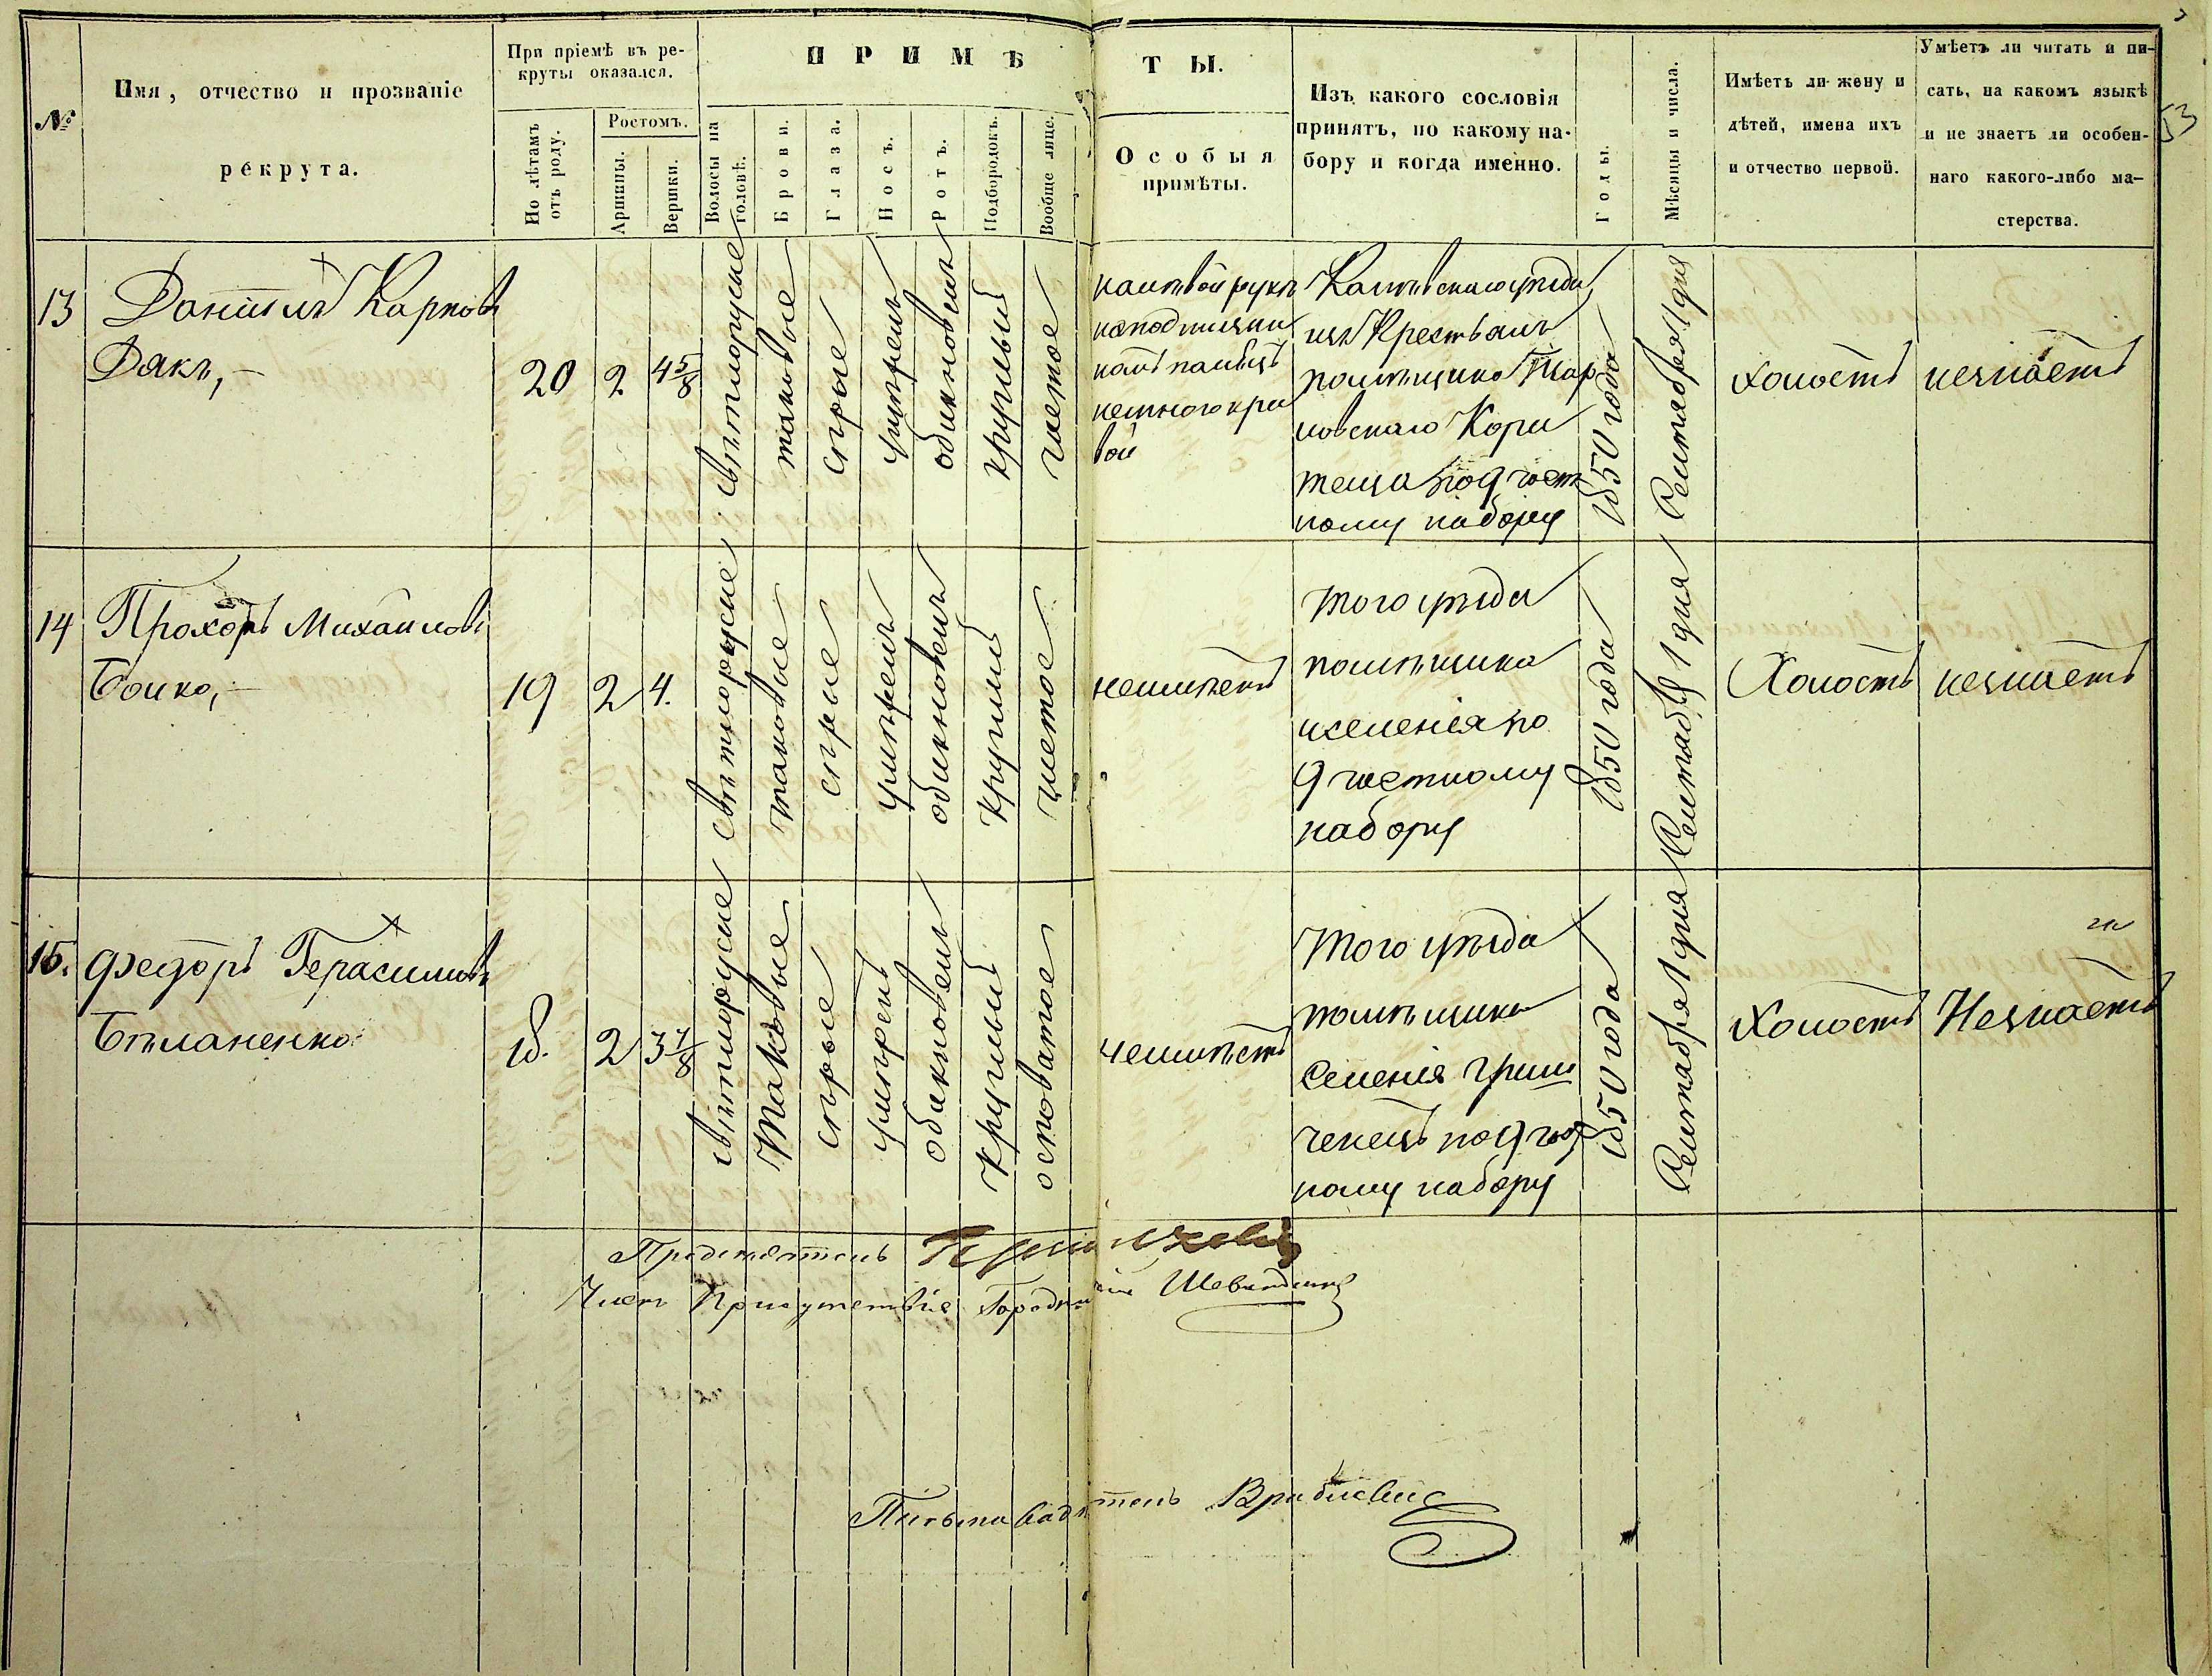 53
№
Имя, отчество и прозваніе
рекрута.
При пріемѣ въ ре-
круты оказался.
По лѣтамъ
отъ роду.
Ростомъ.
Аршины.
Вершки.
ПРИМѢ
ТЫ.
Волосы на
головѣ.
Брови.
Глаза.
Носъ.
Ротъ.
Подбородокъ.
Вообще лице.
Особыя
примѣты.
Изъ какого сословія
принятъ, по какому на-
бору и когда именно.
Годы.
Мѣсяцы и числа.
Имѣетъ ли жену и
дѣтей, имена ихъ
и отчество первой.
Умѣетъ ли читать и пи-
сать, на какомъ языкѣ
и не знаетъ ли особен-
наго какого-либо ма-
стерства.
13
Даниилъ Карповъ
Дякъ,
20
2
4 5/8
свѣтлорусые
таковые
сѣрые
умѣренъ
обыкновенъ
круглый
чистое
на лѣвой рукѣ
Каневскаго уѣзда
изъ Крестьянъ
помѣщика
по 9 част
ному набору
1850 года
Сентября 1 дня
холостъ
незнаетъ
14
Прохоръ Михайловъ
Бойко,
19
2
4.
свѣтлорусые
таковые
сѣрые
умѣренъ
обыкновенъ
круглый
чистое
неимѣетъ
того уѣзда
помѣщика
и селенія по
9 частному
набору
1850 года
Сентября 1 дня
Холостъ
незнаетъ
15.
Федоръ Герасимовъ
Бѣланенко
18.
2
3 7/8
свѣтлорусые
таковые
сѣрые
умѣренъ
обыкновенъ
круглый
осповатое
неимѣетъ
того уѣзда
помѣщика
селенія Гриш
ченецъ по 9 час
ному набору
1850 года
Сентября 1 дня
холостъ
Незнаетъ
Предсѣдатель
Членъ Присутствія Городничій
Письмоводитель